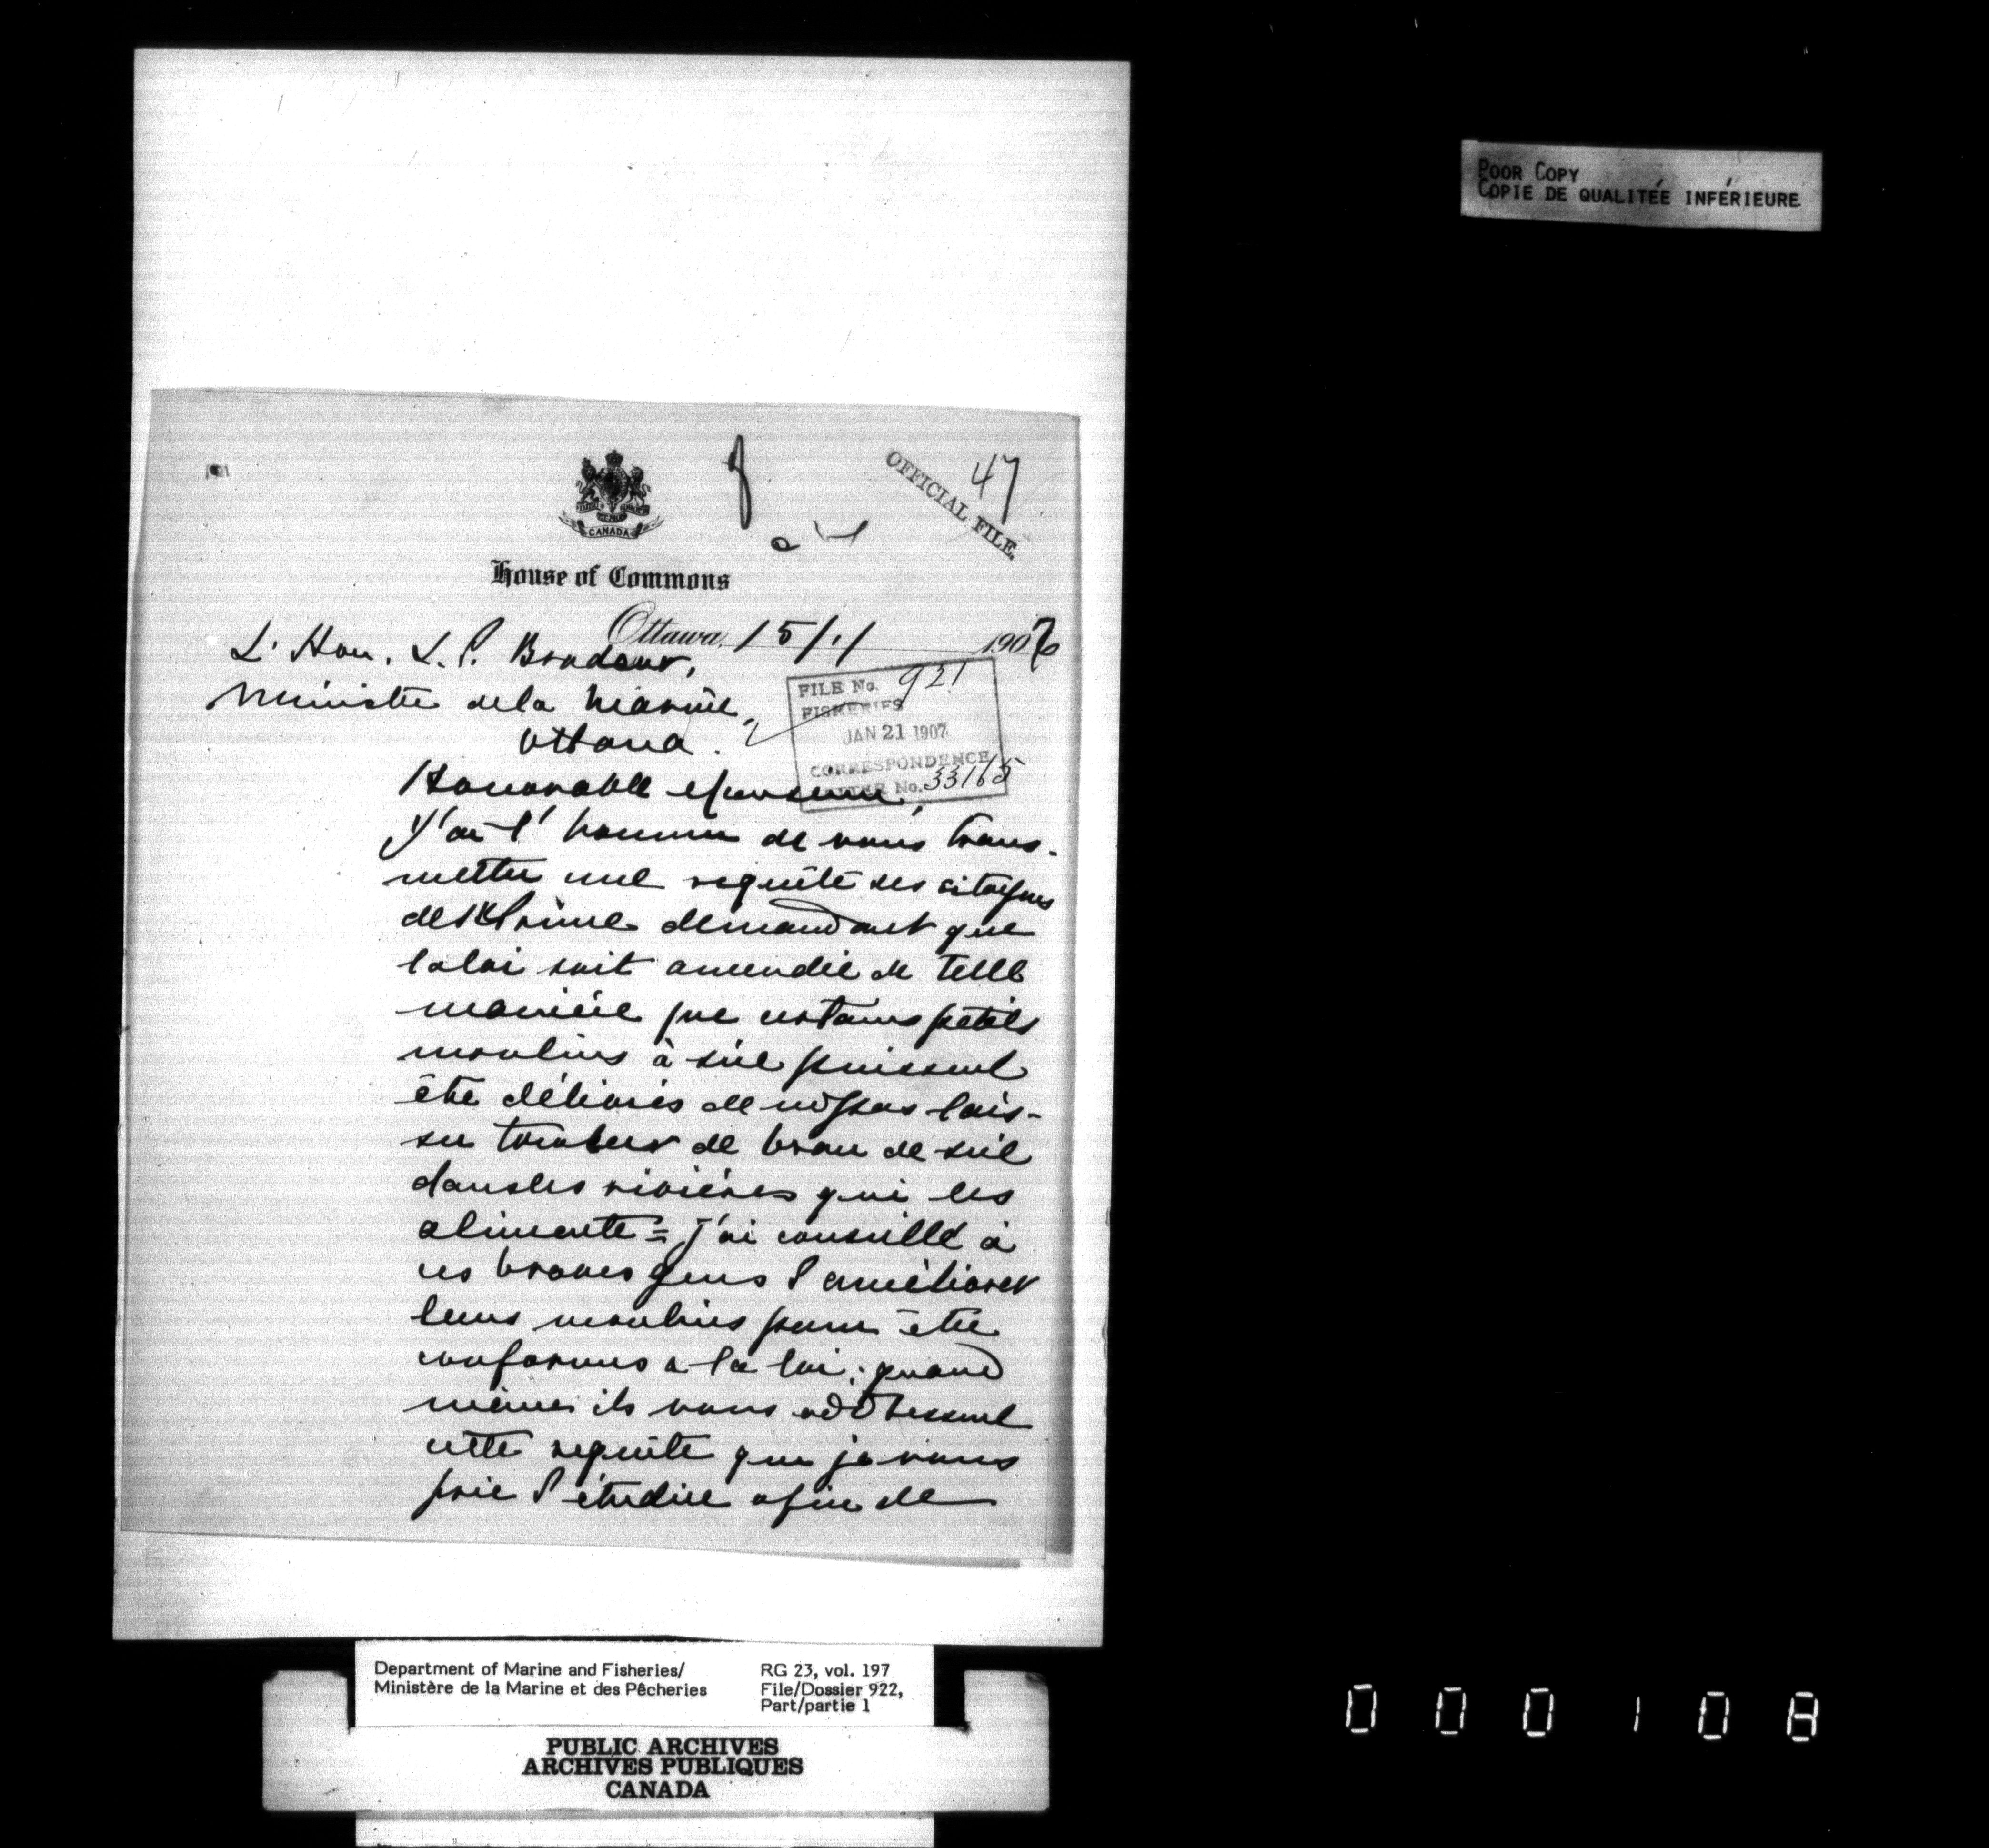 POOR COPY
COPIE DE QUALITÉE INFÉRIEURE
47
OFFICIAL FILE.
CANADA
House of Commons
Ottawa, 15/1/ 1907
L'Hon. L. P. Brodeur,
Ministre de la Marine,
Ottawa.
FILE No. 921
FISHERIES
JAN 21 1907
CORRESPONDENCE
No. 33165
Honorable Monsieur,
J'ai l'honneur de vous trans-
mettre une requête des citoyens
de St Prime demandant que
la loi soit amendée de telle
manière que certains petits
moulins à scie puissent
être délivrés de ne pas lais-
ser tomber de bran de scie
dans les rivières qui les
alimente = j'ai conseillé à
ces braves gens d'améliorer
leurs moulins pour être
conformes a la loi; quand
même ils vous addressent
cette requête que je vous
prie d'étudier afin de
Department of Marine and Fisheries/
Ministère de la Marine et des Pêcheries
RG 23, vol. 197
File/Dossier 922,
Part/partie 1
PUBLIC ARCHIVES
ARCHIVES PUBLIQUES
CANADA
000108